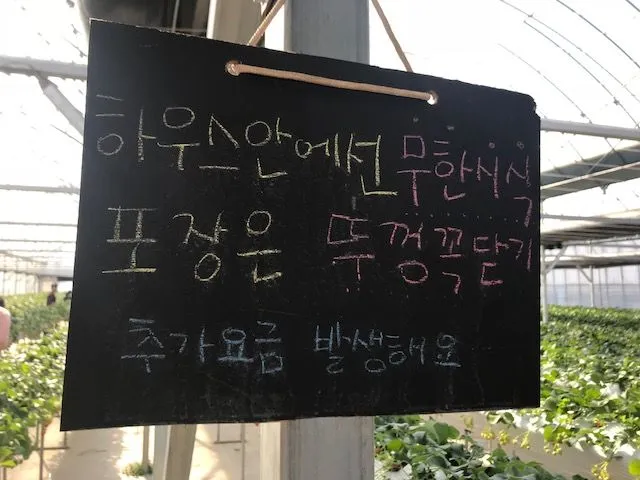 하우스안에선 무한시식
포장은 뚜껑꼭닫기
추가요금 발생해요